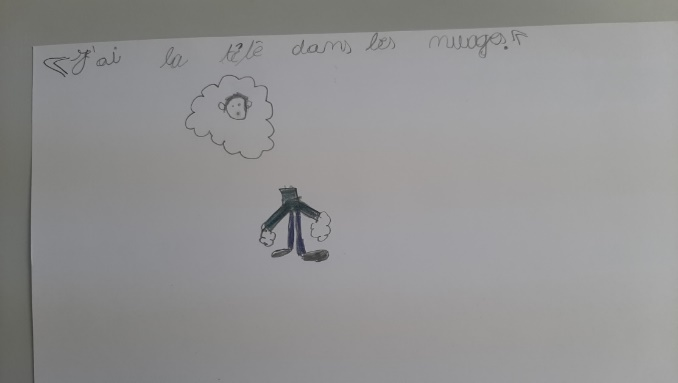 « J'ai la tête dans les nuages. »